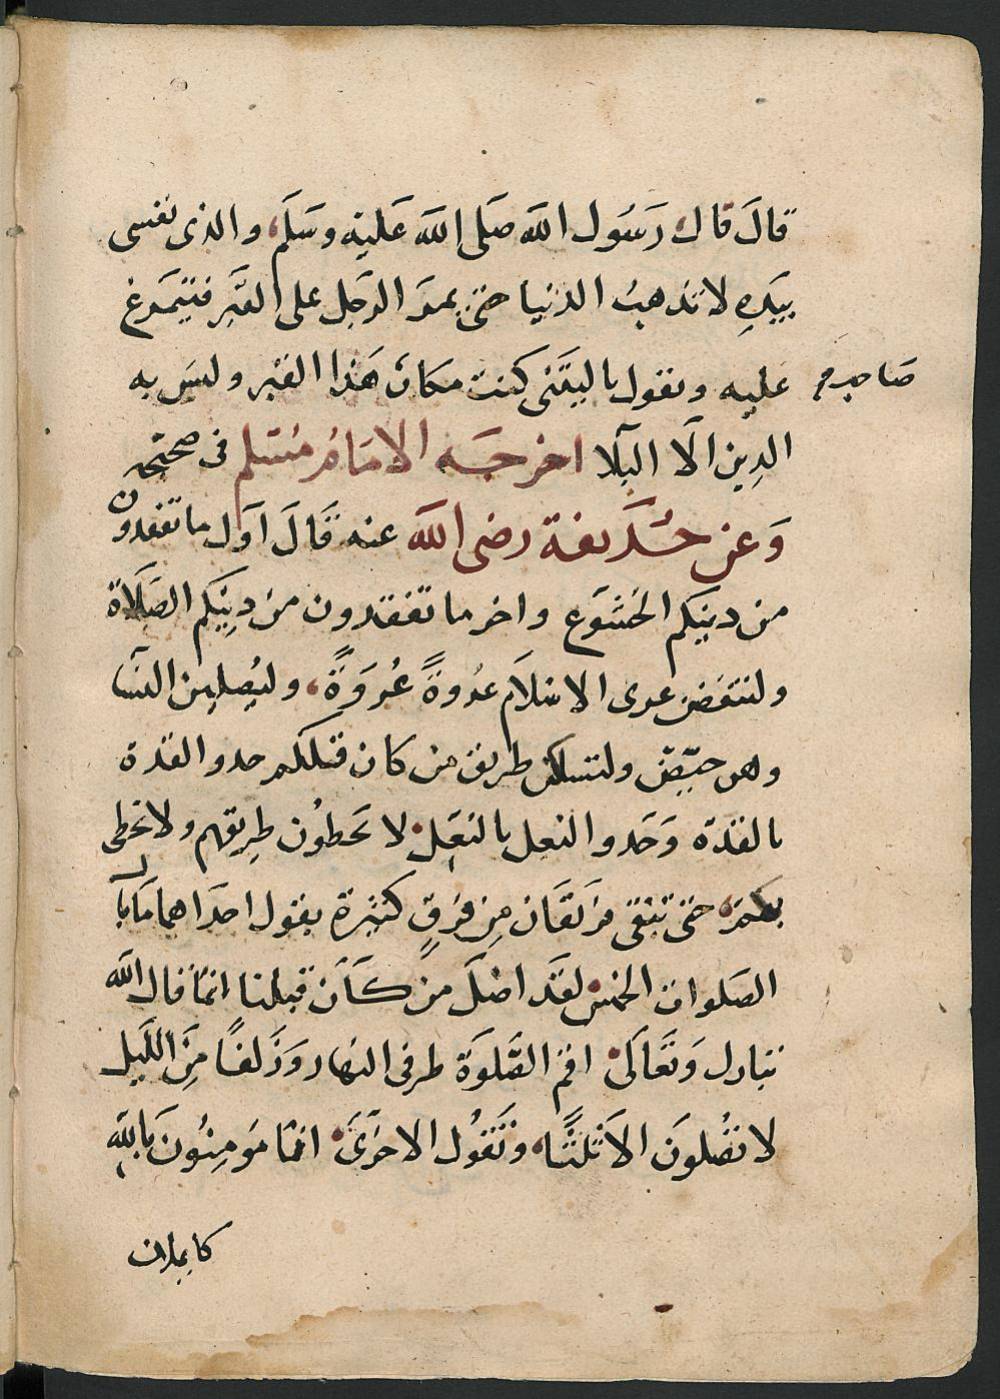 قالَ قال رَسُول اللّه صَلى اللّه عَليْه وسَلَم والذى نفسى
بيَدِهِ لا تذهبُ الدنيا حتى يمرَ الرجل على القبْرِ فيتمرغ
عليه ويقول يا ليتَنى كنت مكان هَذا القبْر وليسَ به
صَاحبه
الدِين الَا البَلا اخرجَه الامَامُ مُسْلم فى صحيحه
وَعن حُذَيفة رضى اللّه عنه قَالَ اَوّل ما تفقدون
من دينكم الخشوَع واخر ما تفقدون من دِينِكم الصَلَاة
ولتنتقضن عرى الاسْلاَم عرُوةً عُروَةً وليُصلين النسَا
وهن حيَّض ولتسلكن طريق من كان قبلكم حدو القدة
بالقدّة وَحَدو النعل بالنعَل لا تخطون طِريقهم ولا تخطى
بكم حتى تبقى فرَقتَان مِن فِرَقٍ كثيرة يقول احدَاهما مَا بال
الصَلوات الخمس لقَد اضلَ من كَانَ قبلنا انمَا قال اللّه
تبارك وَتَعَالى اقم الصَّلَوَة طرفى النهار وَزَلفًا مِنَ اللَّيل
لا تصُلونَ الا ثلثًا وَتَقوُل الاخرَىَ انمَّا مَومِنُونَ بَاللّهِ
كايمان